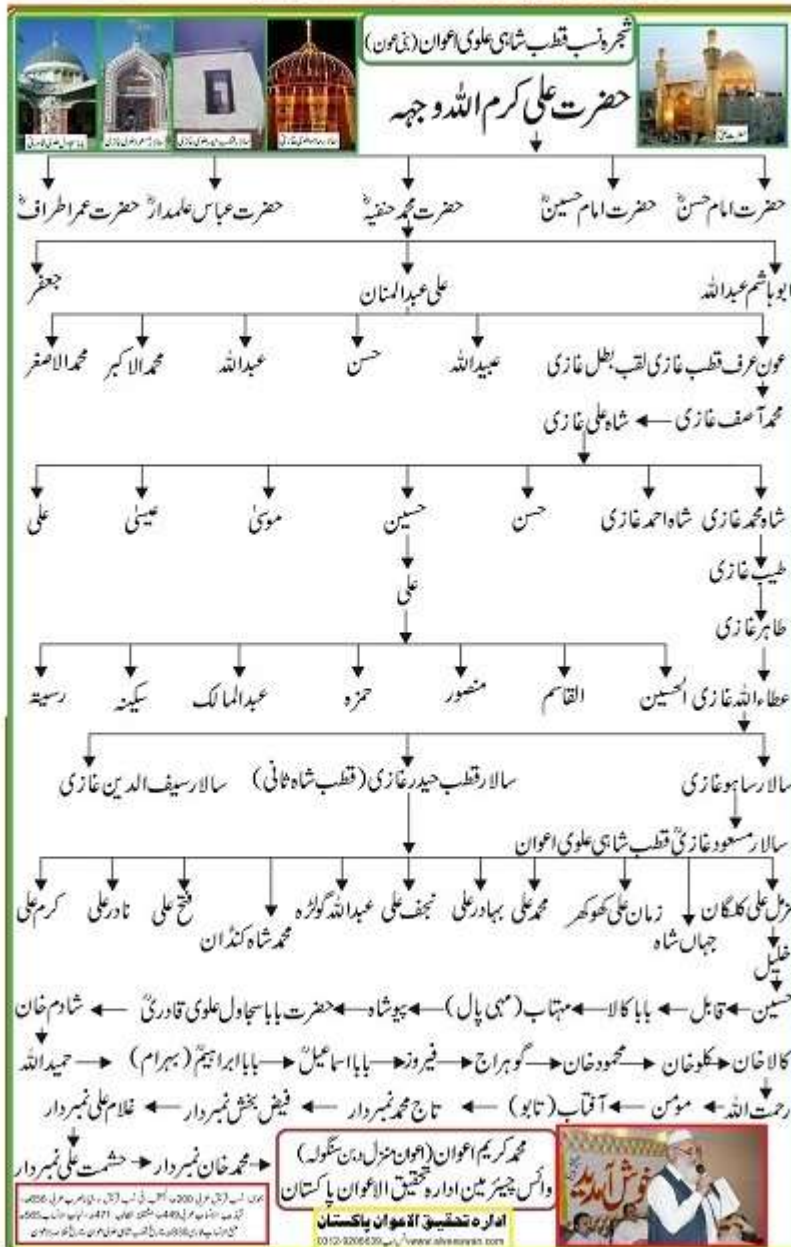 شجرہ نسب قطب شاہی علوی اعوان (بنی عون)
حضرت علی کرم اللہ وجہہ
حضرت امام حسنؓ حضرت امام حسینؓ حضرت محمد حنفیہؓ حضرت عباس علمدارؓ حضرت عمر اطرافؓ
ابوہاشم عبداللہ علی عبدالمنان جعفر
عون عرف قطب غازی لقب بطل غازی عبیداللہ حسن عبداللہ محمد الاکبر محمد الاصغر
محمد آصف غازی ← شاہ علی غازی
شاہ محمد غازی شاہ احمد غازی حسن حسین موسیٰ عیسیٰ علی
طیب غازی
علی
طاہر غازی
عطاء اللہ غازی الحسین القاسم منصور حمزہ عبدالمالک سکینہ رسیتہ
سالار ساہو غازی سالار قطب حیدر غازی (قطب شاہ ثانی) سالار سیف الدین غازی
سالار مسعود غازیؒ قطب شاہی علوی اعوان
مزمل علی کلگان جہاں شاہ زمان علی کھوکھر محمد علی بہادر علی نجف علی عبداللہ گولڑہ محمد شاہ کنڈان فتح علی نادر علی کرم علی
خلیل
حسین ← قابل ← بابا کالا ← مہتاب (مہی پال) ← پیوشاہ ← حضرت بابا سجاول علوی قادریؒ ← شادم خان
کالا خان ← کلو خان ← محمود خان ← گوہراج ← فیروز ← بابا اسماعیلؒ ← بابا ابراہیمؒ (بہرام) ← حمید اللہ
رحمت اللہ ← مومن ← آفتاب (تابو) ← تاج محمد نمبردار ← فیض بخش نمبردار ← غلام علی نمبردار
حشمت علی نمبردار → محمد خان نمبردار →
محمد کریم اعوان (اعوان منزل دبن سنگولہ)
وائس چیئرمین ادارہ تحقیق الاعوان پاکستان
خوش آمدید
ادارہ تحقیق الاعوان پاکستان